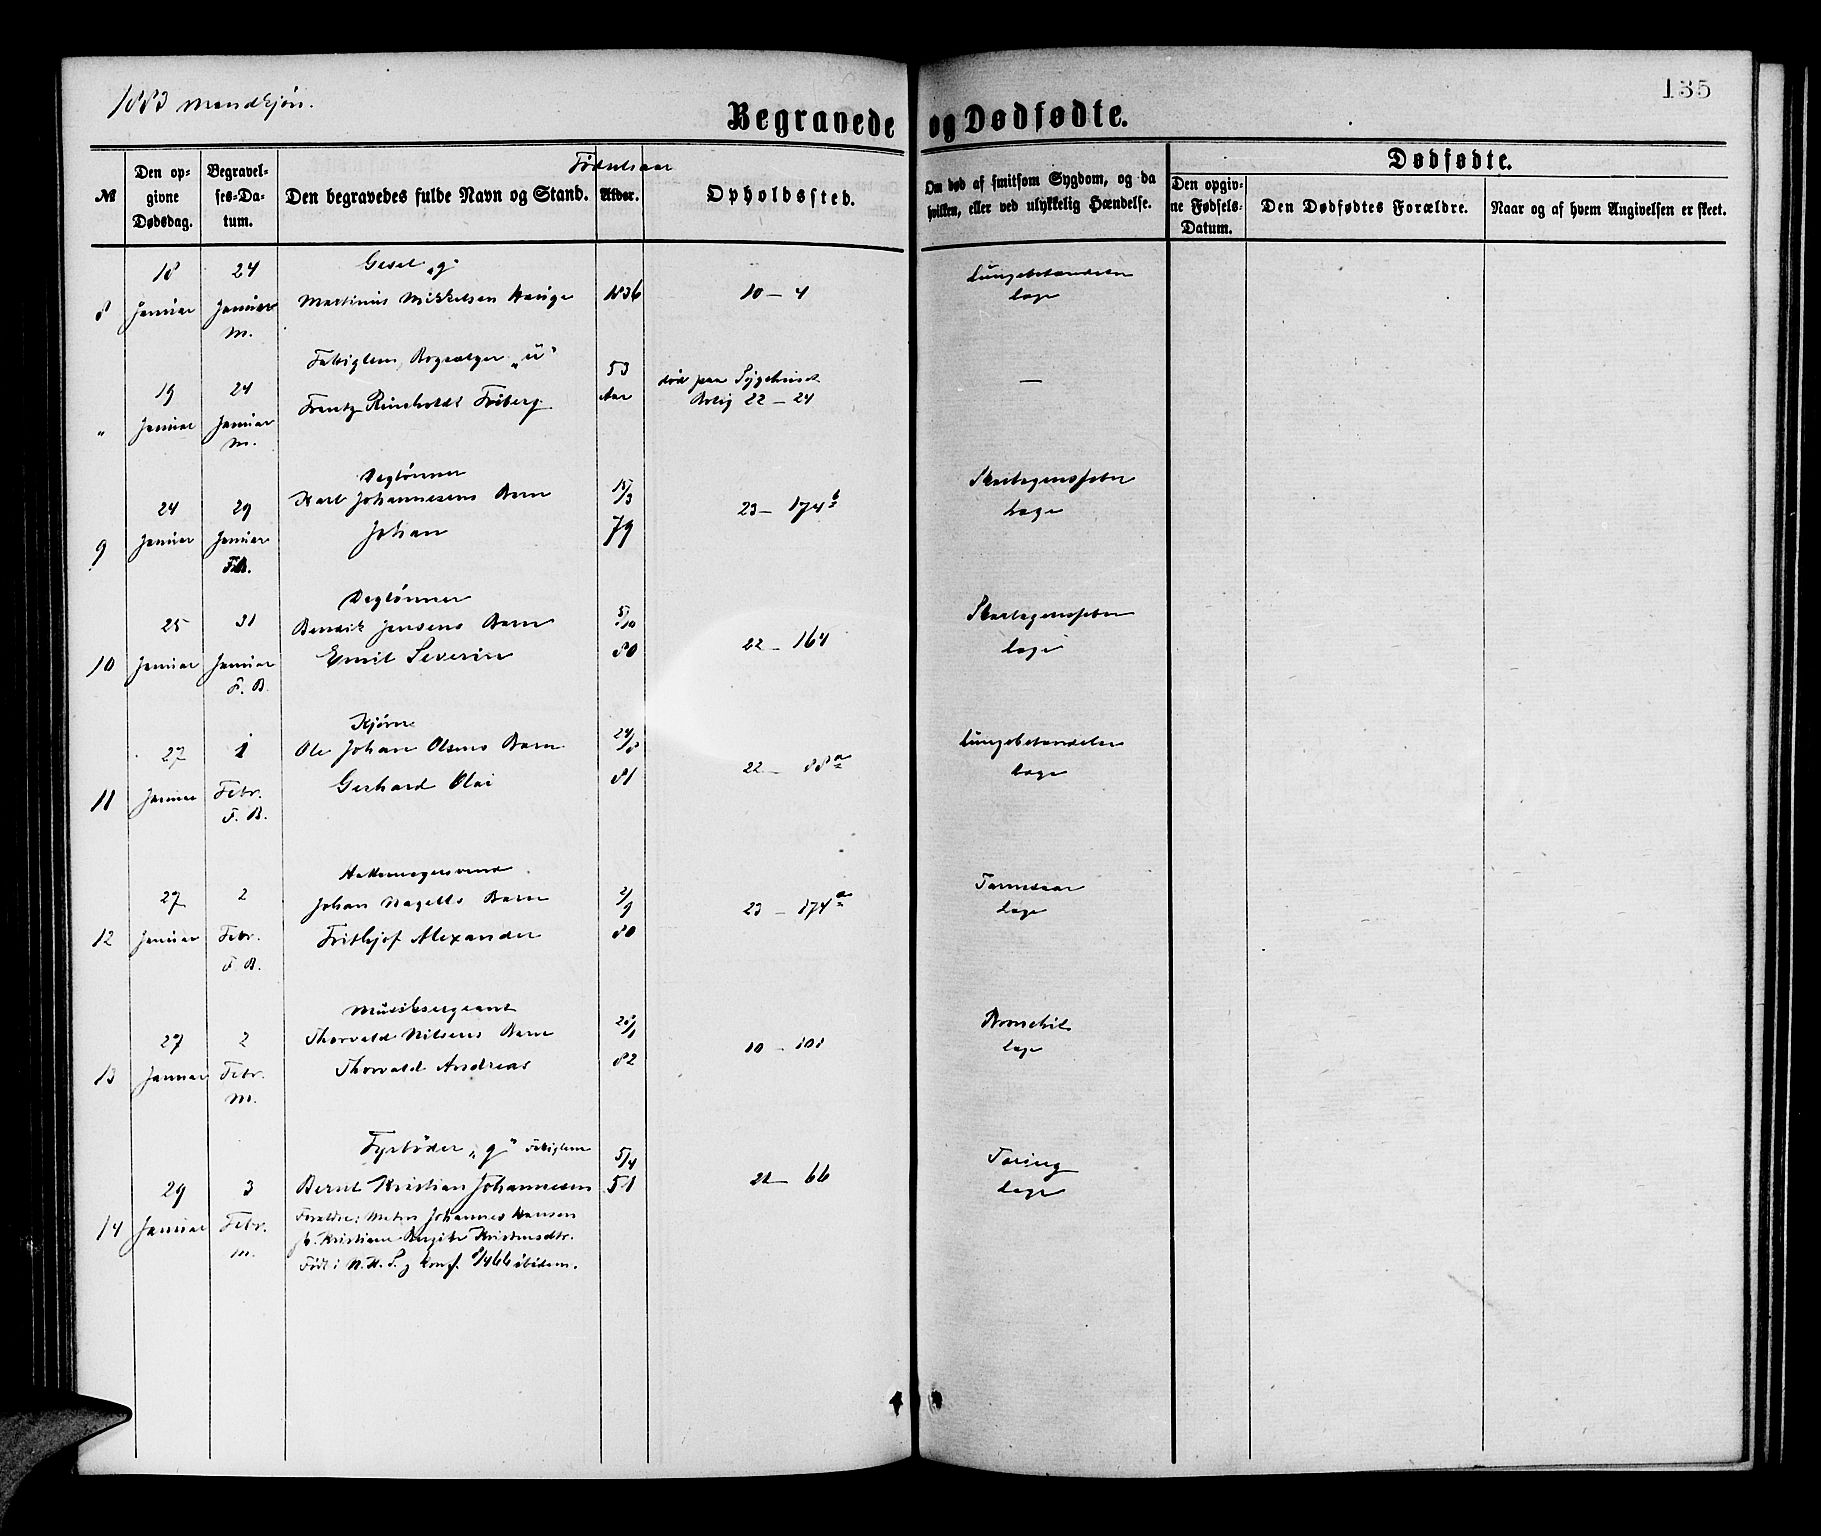 1883 Mandkjøn.
135
Begravede og Dødfødte.
№
Den opgivne Dødsdag.
Begravelses-Datum.
Den begravedes fulde Navn og Stand.
Fødselsaar
Alder.
Opholdssted.
Om død af smitsom Sygdom, og da hvilken, eller ved ulykkelig Hændelse.
Dødfødte.
Den opgivne Fødsels-Datum.
Den Dødfødtes Forældre.
Naar og af hvem Angivelsen er skeet.
8
18 Januar
24 Januar M.
"g"
Martinus Mikkelsen Hauge
1836
10 – 4
Lungebetændelse
Læge
"
19 Januar
24 Januar M.
Fattiglem, Bogsælger "u"
Frantz Reinholdt Friberg
53 Aar
død paa Sygehuset
Bolig 22 – 24
—
9
24 Januar
29 Januar F.B.
Daglønner
Karl Johannesens Barn
Johan
15/3 79
23 – 174 b
Skarlagensfeber
Læge
10
25 Januar
31 Januar F. B.
Daglønner
Bendik Jensens Barn
Emil Severin
5/10 80
22 – 164
Skarlagensfeber
Læge
11
27 Januar
1 Febr. F. B.
Ole Johan Olsens Barn
Gerhard Olai
24/8 81
22 – 88 a
Lungebetændelse
Læge
12
27 Januar
2 Febr. F. B.
Hattemagersvend
Johan Nagells Barn
Frithjof Alexander
2/9 80
23 – 174 a
Læge
13
27 Januar
2 Febr. M.
Musiksergeant
Thorvald Nilsens Barn
Thorvald Andreas
82
10 – 101
Bronchit
Læge
14
29 Januar
3 Febr. M.
Fyrbøder "g" Fattiglem
Bernt Kristian Johannesen
5/4 51
66
Tæring
Læge
Forældre: Johannes Hansen
Kristiane Birgitte Kristensdtr.
Født i N. H. S. g konf. 8/4 66 ibidem.